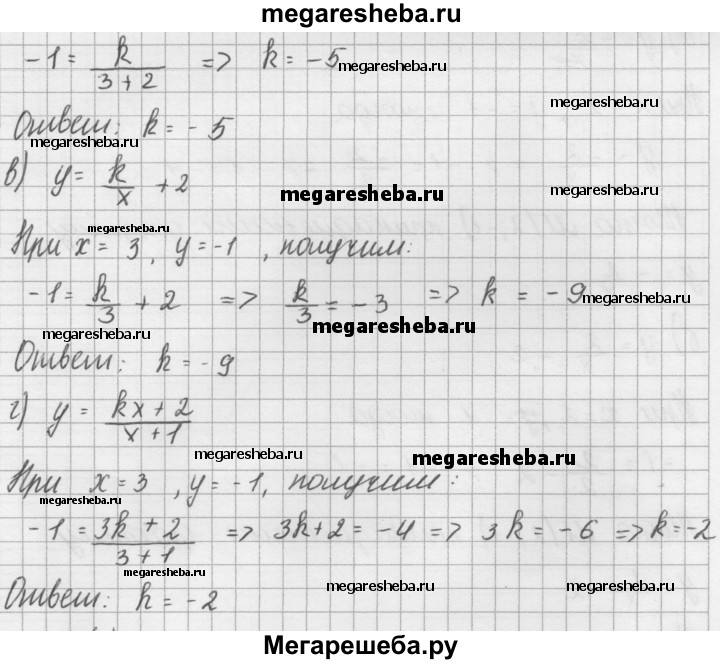 megaresheba.ru
-1 = k/(3+2) => k = -5
megaresheba.ru
megaresheba.ru
Ответ: k = -5
megaresheba.ru
в) y = k/x + 2
megaresheba.ru
megaresheba.ru
megaresheba.ru
При x = 3, y = -1, получим:
-1 = k/3 + 2 => k/3 = -3 => k = -9
megaresheba.ru
megaresheba.ru
megaresheba.ru
Ответ: k = -9
г) y = (kx + 2)/(x + 1)
megaresheba.ru
megaresheba.ru
При x = 3, y = -1, получим:
megaresheba.ru
-1 = (3k + 2)/(3 + 1) => 3k + 2 = -4 => 3k = -6 => k = -2
megaresheba.ru
megaresheba.ru
megaresheba.ru
Ответ: k = -2
Мегарешеба.ру